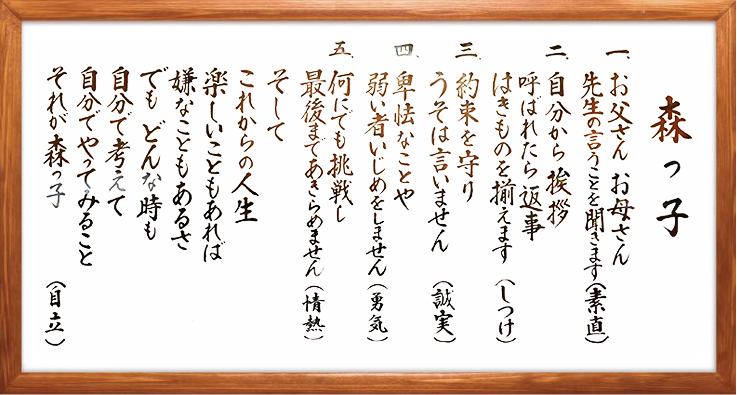 森っ子
一、お父さん お母さん
先生の言うことを聞きます(素直)
二、自分から挨拶
呼ばれたら返事
はきものを揃えます(しつけ)
三、約束を守り
うそは言いません(誠実)
四、卑怯なことや
弱い者いじめをしません(勇気)
五、何にでも挑戦し
最後まであきらめません(情熱)
そして
これからの人生
楽しいこともあれば
嫌なこともあるさ
でも どんな時も
自分で考えて
自分でやってみること
それが森っ子(自立)